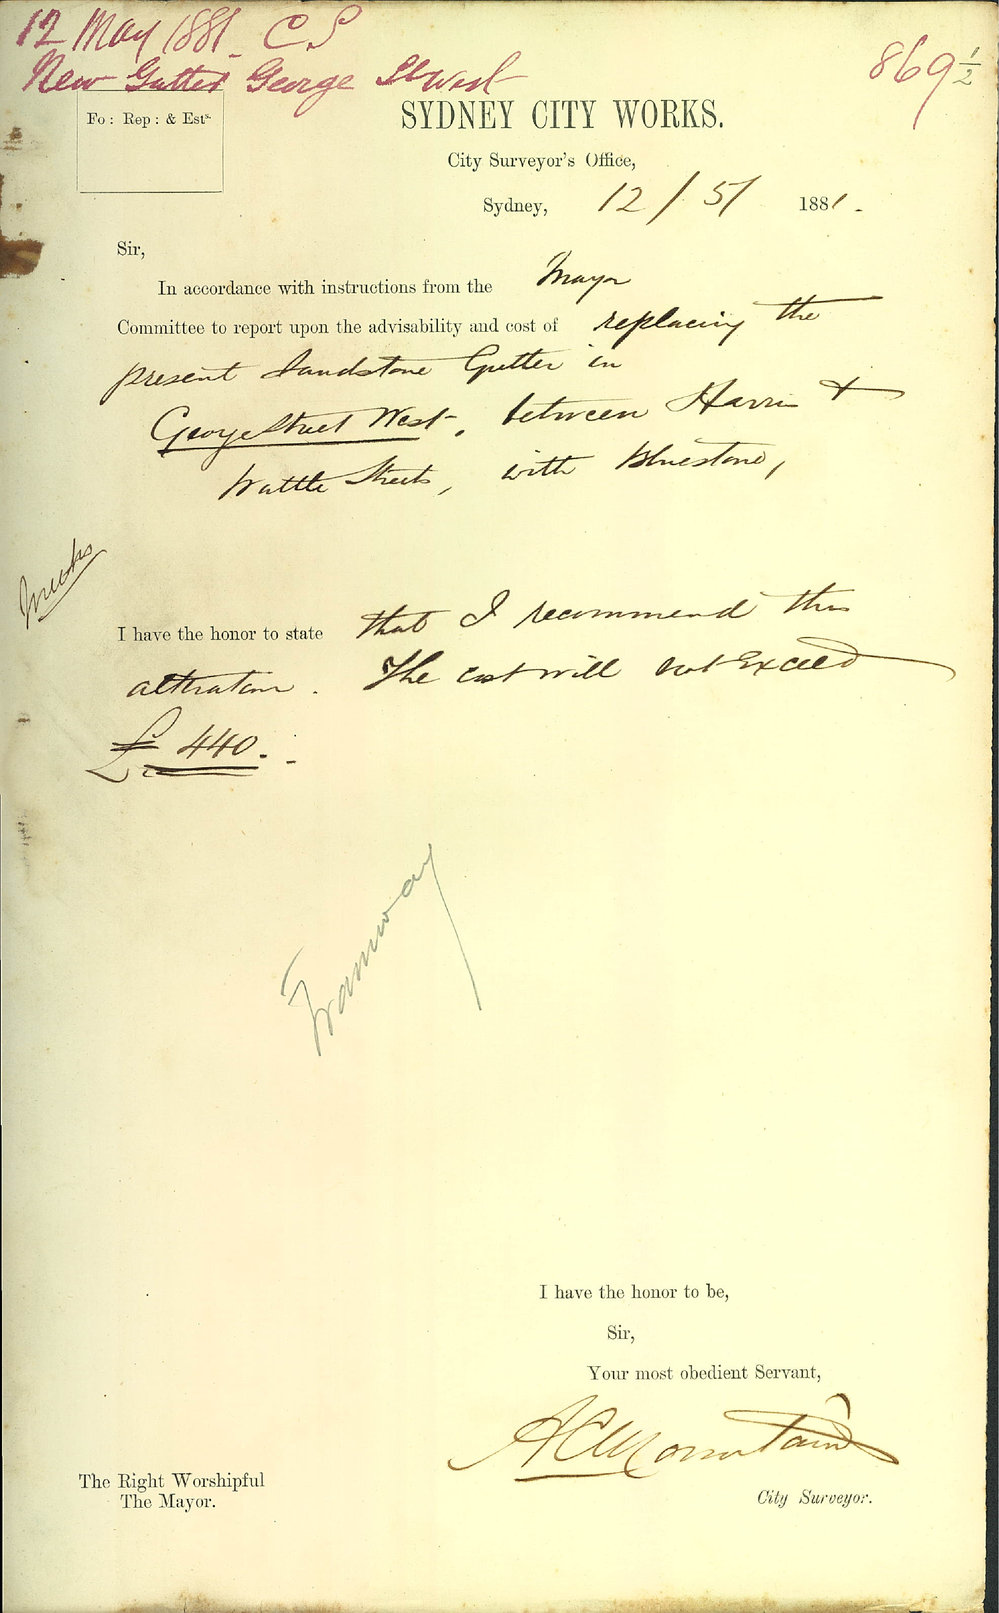 12 May 1881 C S
New Gutter George St West
869 1/2
Fo: Rep: & Ests.
SYDNEY CITY WORKS.
City Surveyor's Office,
Sydney, 12/5/ 1881.
Sir,
In accordance with instructions from the Mayor
Committee to report upon the advisability and cost of replacing the
present Sandstone Gutter in
George Street West, between Harris &
Wattle Streets, with Bluestone,
I have the honor to state that I recommend this
alteration. The cost will not exceed
£440.
Tramway
I have the honor to be,
Sir,
Your most obedient Servant,
A C Mountain
City Surveyor.
The Right Worshipful
The Mayor.